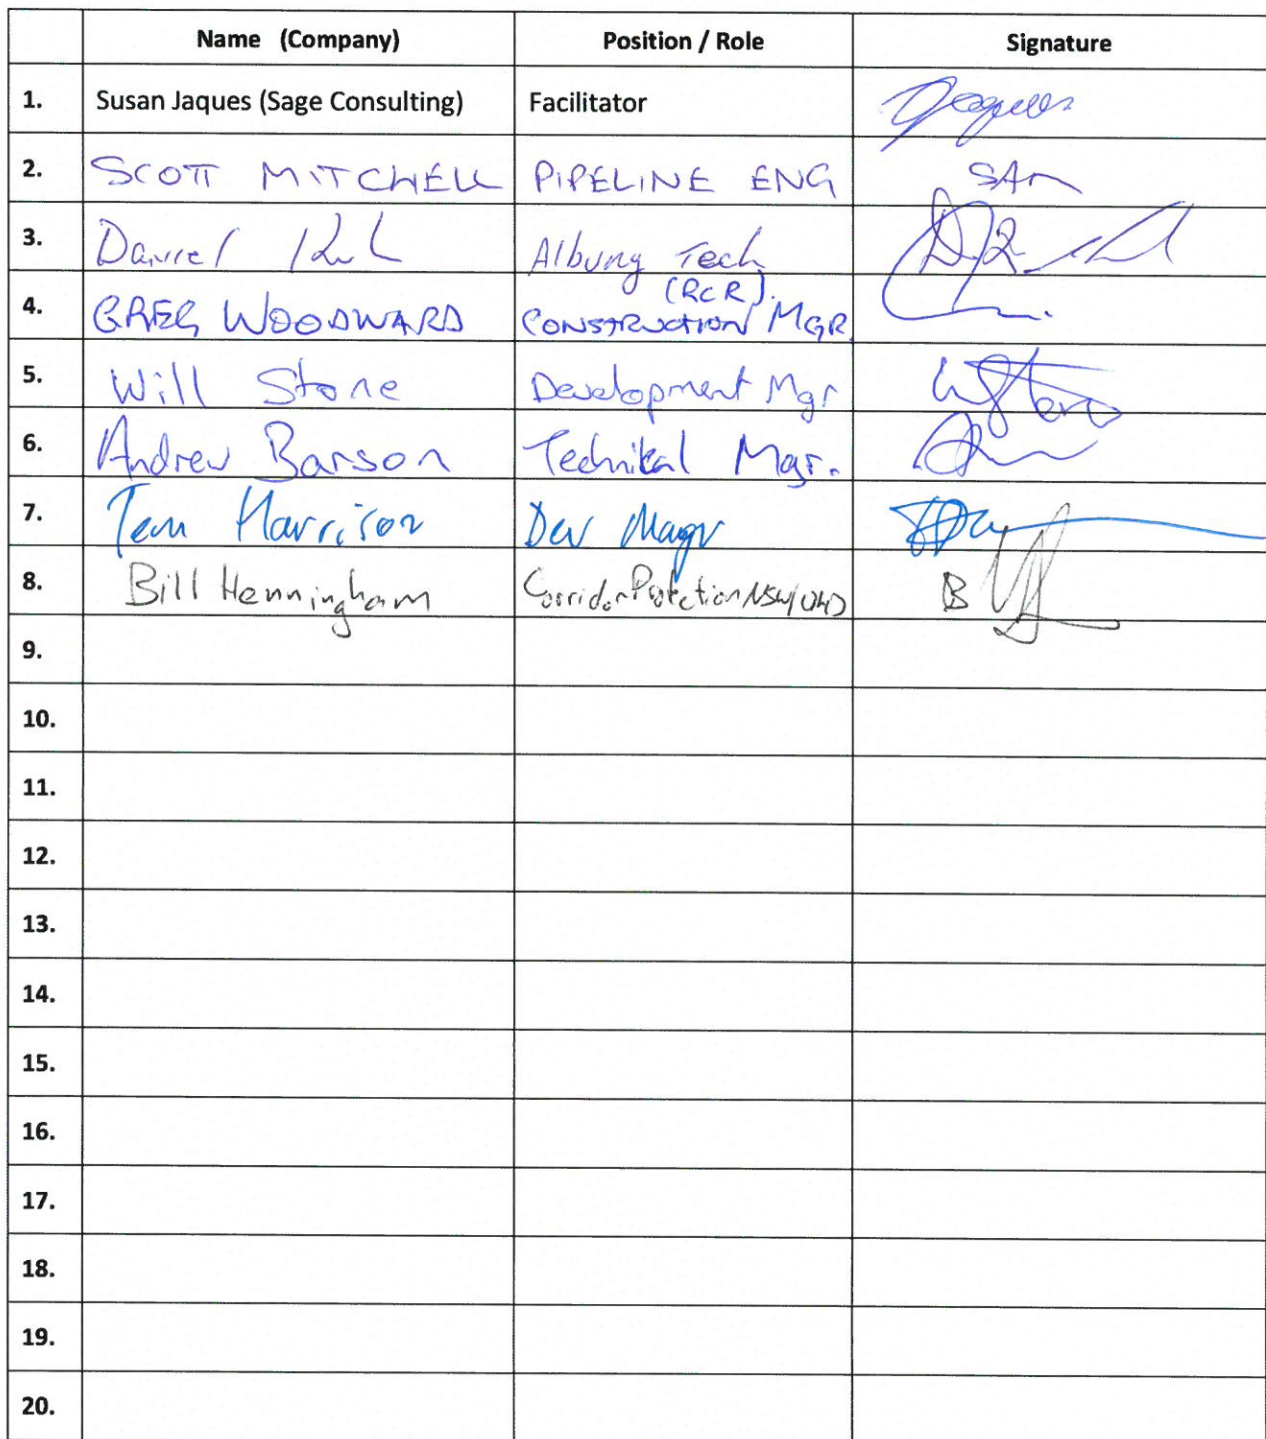 Name (Company) Position / Role Signature
1. Susan Jaques (Sage Consulting) Facilitator Jaques
2. SCOTT MITCHELL PIPELINE ENG SAM
3. Daniel Albury Tech
4. GREG WOODWARD (RCR). CONSTRUCTION MGR.
5. Will Stone Development Mgr
6. Andrew Barson Technikal Mgr.
7. Tom Harrison Dev Magr
8. Bill Henningham Corridor Protection NSW/ B
9.
10.
11.
12.
13.
14.
15.
16.
17.
18.
19.
20.